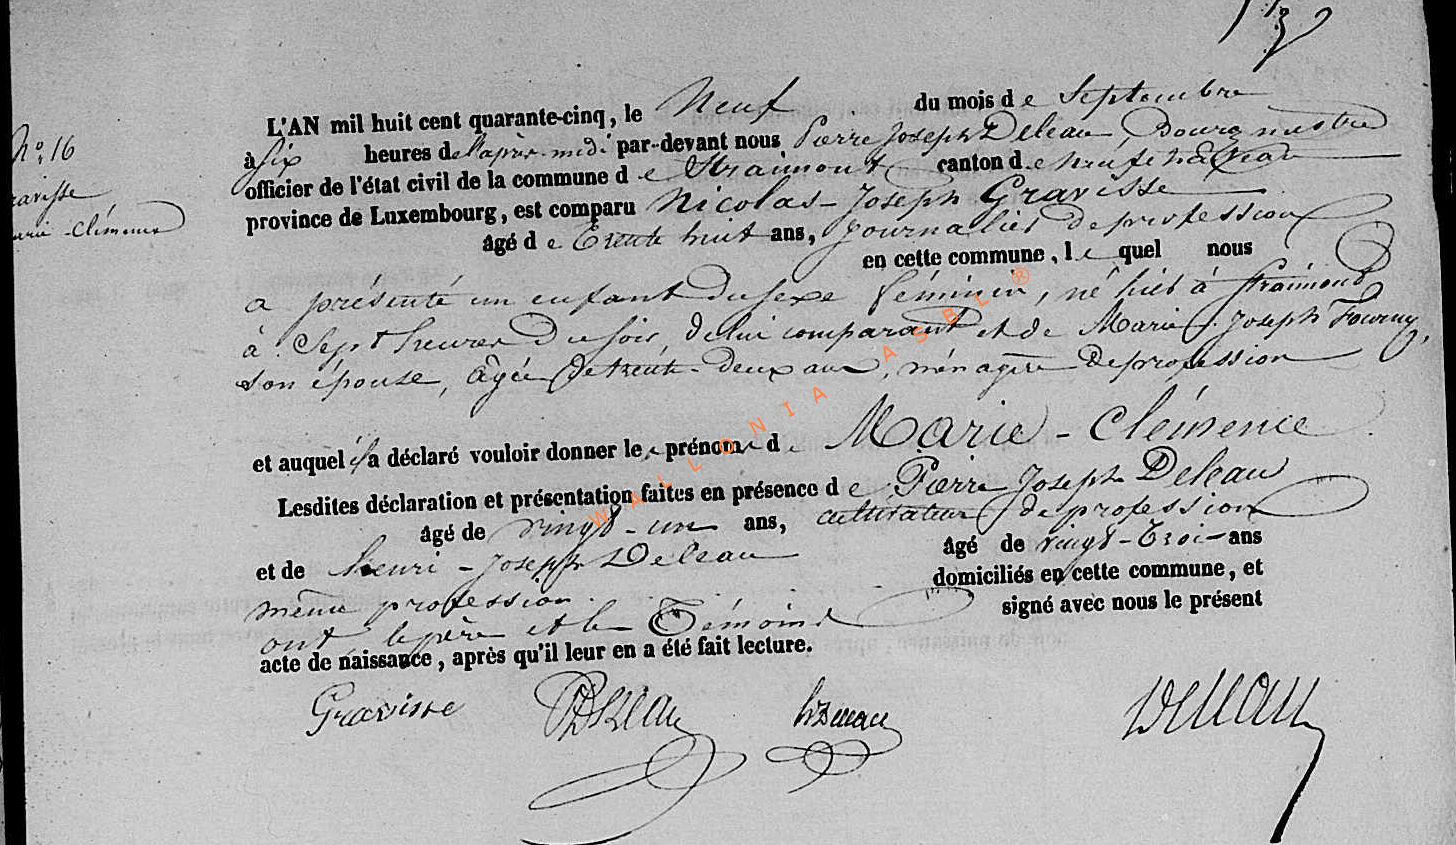 N° 16
Gravisse
Marie-Clémence
L'AN mil huit cent quarante-cinq, le Neuf du mois de Septembre
à Six heures de l'après-midi par-devant nous Pierre Joseph Deleau Bourgmestre
officier de l'état civil de la commune de Straimont canton de Neufchâteau
province de Luxembourg, est comparu Nicolas-Joseph Gravisse
âgé de Trente huit ans, journalier de profession
en cette commune, lequel nous
a présenté un enfant du sexe féminin, né hier à Straimont
à Sept heures du soir, de lui comparant et de Marie J. Joseph Fourny,
son épouse, âgée de trente-deux ans, ménagère de profession
et auquel il a déclaré vouloir donner le prénom de Marie-Clémence
Lesdites déclaration et présentation faites en présence de Pierre Joseph Deleau
âgé de vingt-un ans, cultivateur de profession
et de Henri-Joseph Deleau âgé de vingt-trois ans
même profession domiciliés en cette commune, et
ont, le père et les Témoins signé avec nous le présent
acte de naissance, après qu'il leur en a été fait lecture.
Gravisse PJDeleau hjDeleau Deleau
WALLONIA ASBL ®